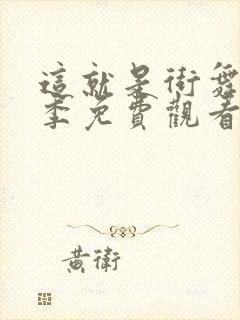 這就是街舞
季免費觀看
黃衛